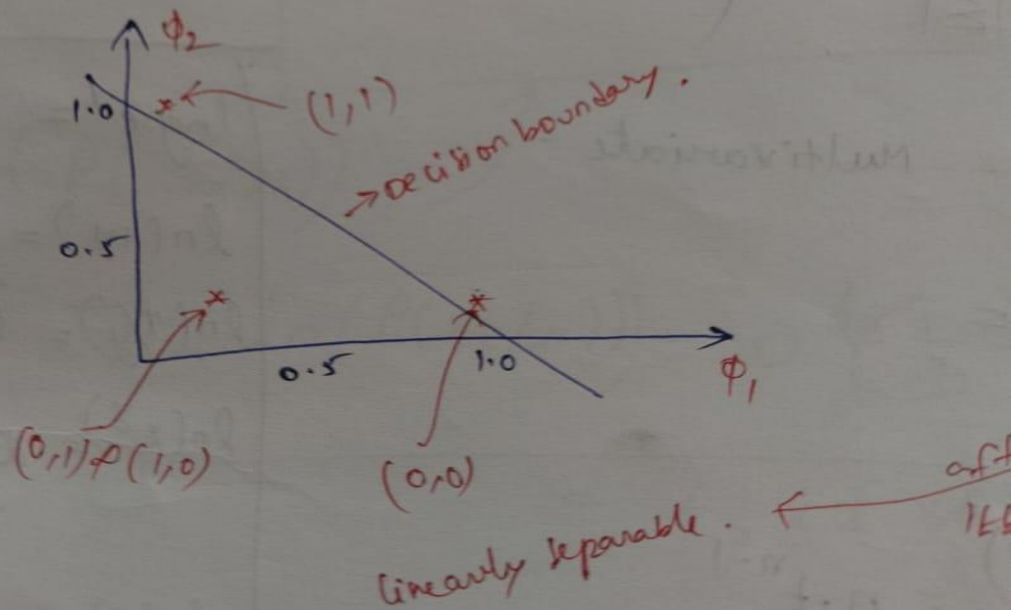 ϕ₂
1.0
(1,1)
Decision boundary.
0.5
0.5
1.0
ϕ₁
(0,1) & (1,0)
(0,0)
linearly separable.